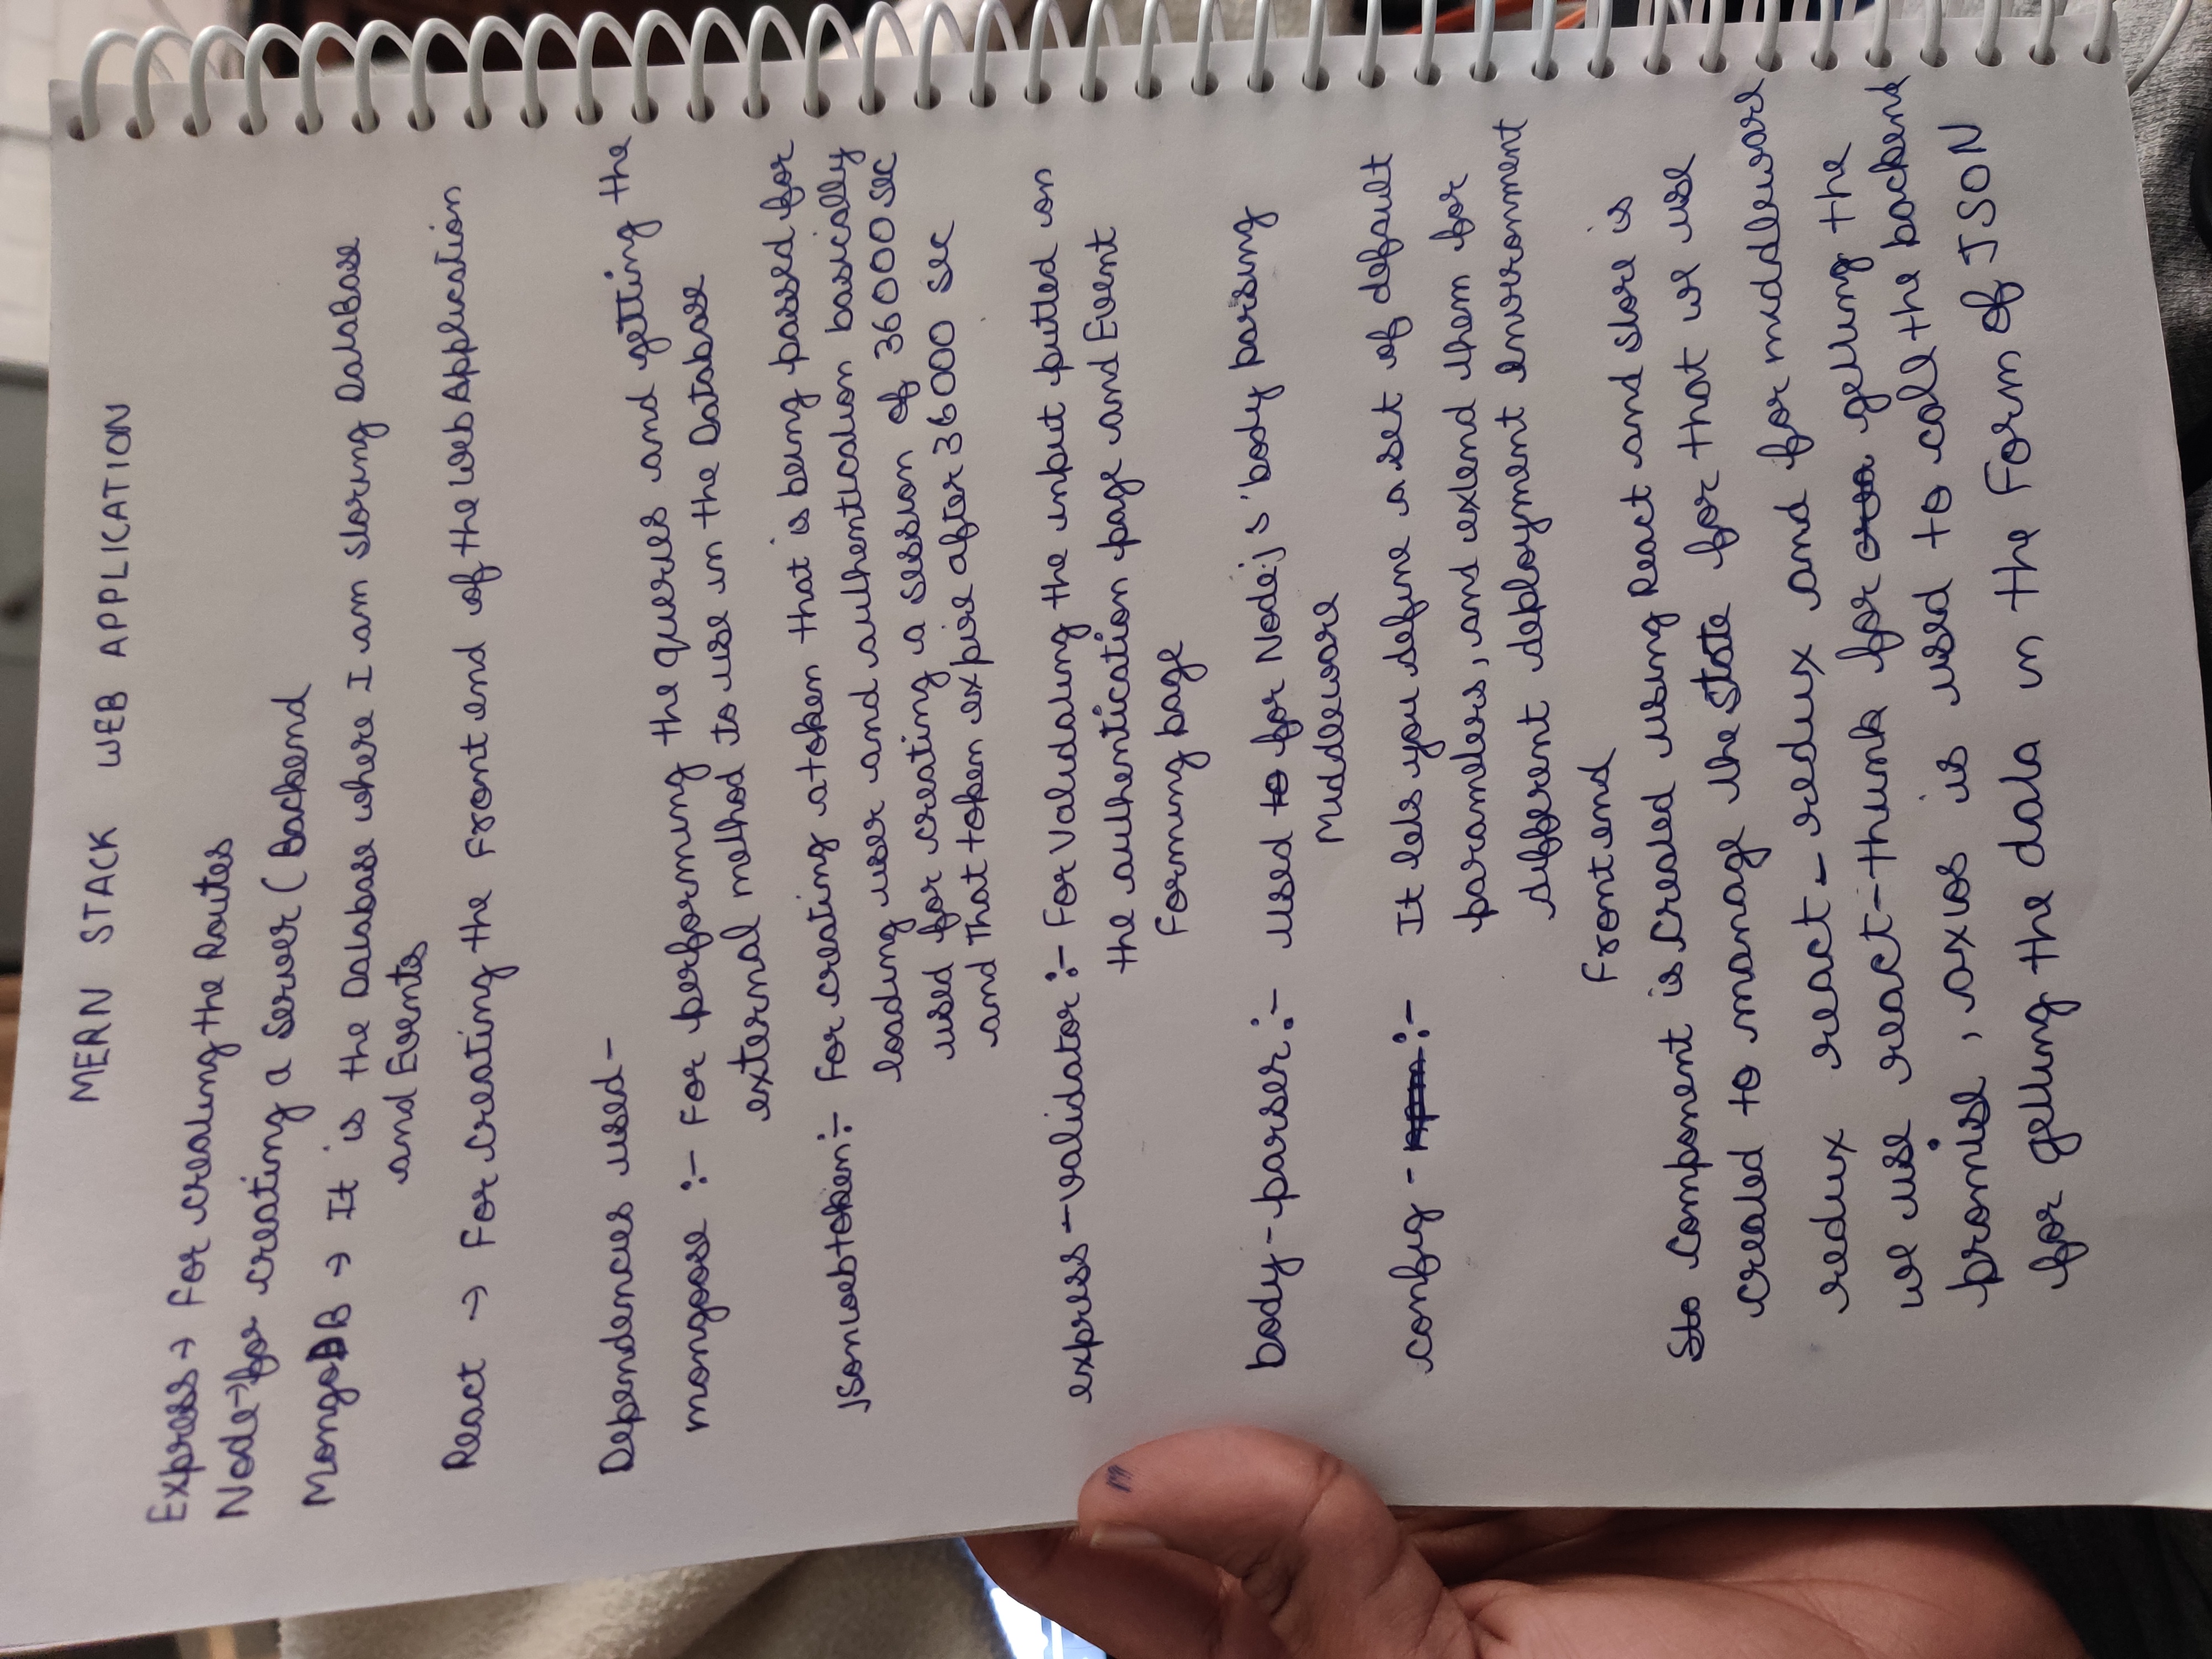 MERN STACK WEB APPLICATION
Express → For creating the Routes
Node → for creating a Server ( Backend
MongoDB → It is the Database where I am storing DataBase
and Events
React → For Creating the Front end of the Web Application
Dependencies used -
mongoose :- For performing the queries and getting the
external method to use in the Database
jsonwebtoken :- For creating a token that is being passed for
loading user and authentication basically
used for creating a session of 36000 sec
and that token expire after 36000 sec
express-validator :- For Validating the input putted on
the authentication page and Event
Forming page
body-parser :- used to for Node.js 'body parsing
Middleware
config - npm :- It lets you define a set of default
parameters, and extend them for
different deployment environment
Front end
Sto Component is Created using React and store is
created to manage the state for that we use
redux react-redux and for middleware
we use react-thunk for getting the
promise, axios is used to call the backend
for getting the data in the Form of JSON